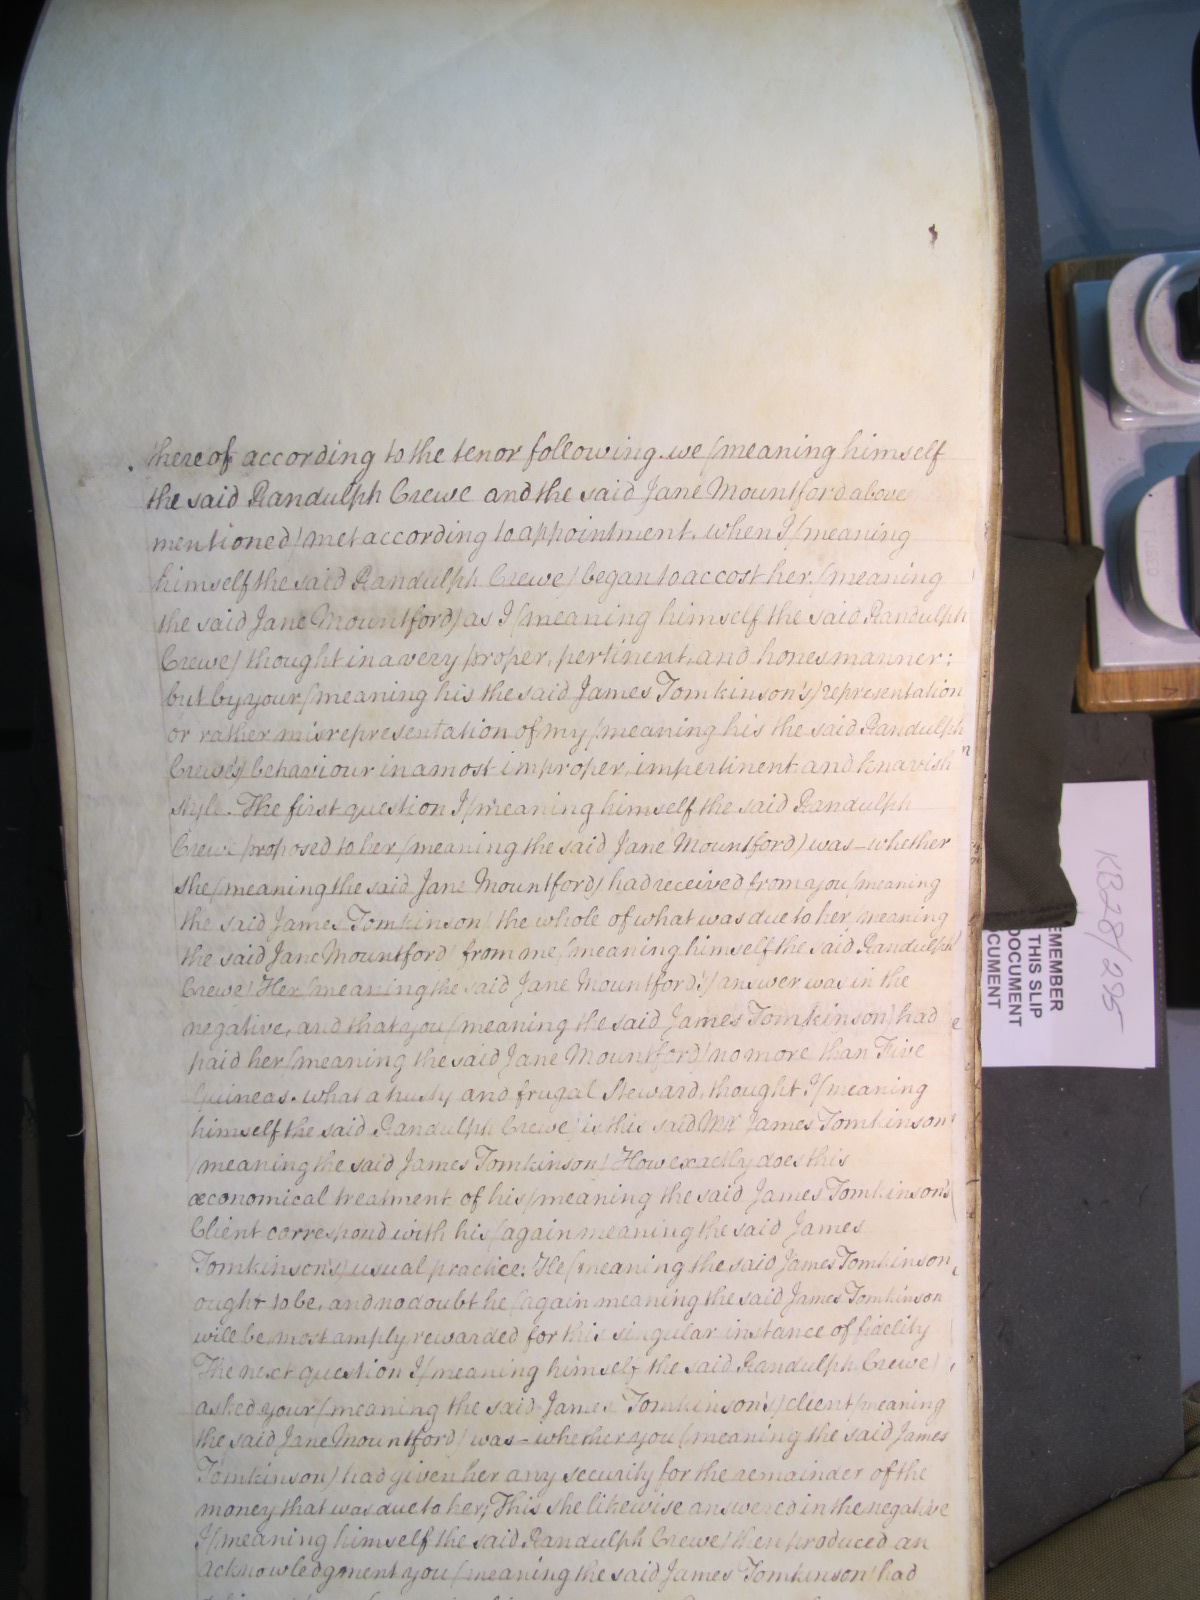 thereof according to the tenor following. we (meaning himself
the said Randulph Crewe and the said Jane Mountford above
mentioned) met according to appointment. when I (meaning
himself the said Randulph Crewe) began to accost her (meaning
the said Jane Mountford) as I (meaning himself the said Randulph
Crewe) thought in a very proper, pertinent, and hones manner:
but by your (meaning his the said James Tomkinson's) representation
or rather misrepresentation of my (meaning his the said Randulph
Crewe's) behaviour in a most improper, impertinent and knavish
style. The first question I (meaning himself the said Randulph
Crewe) proposed to her (meaning the said Jane Mountford) was – whether
she (meaning the said Jane Mountford) had received from you (meaning
the said James Tomkinson) the whole of what was due to her (meaning
the said Jane Mountford) from me (meaning himself the said Randulph
Crewe) Her (meaning the said Jane Mountford's) answer was in the
negative, and that you (meaning the said James Tomkinson) had
paid her (meaning the said Jane Mountford) no more than Five
Guineas. what a trusty and frugal Steward, thought I (meaning
himself the said Randulph Crewe) is this said Mr James Tomkinson
(meaning the said James Tomkinson) How exactly does this
œconomical treatment of his (meaning the said James Tomkinson's)
Client correspond with his (again meaning the said James
Tomkinson's) usual practice. He (meaning the said James Tomkinson
ought to be, and no doubt he (again meaning the said James Tomkinson
will be, most amply rewarded for this singular instance of fidelity
The next question I (meaning himself the said Randulph Crewe)
asked your (meaning the said James Tomkinson's) client (meaning
the said Jane Mountford) was – whether you (meaning the said James
Tomkinson) had given her any security for the remainder of the
money that was due to her; This she likewise answered in the negative
I (meaning himself the said Randulph Crewe) then produced an
acknowledgment you (meaning the said James Tomkinson) had
KB28/295
EMEMBER
THIS SLIP
DOCUMENT
CUMENT